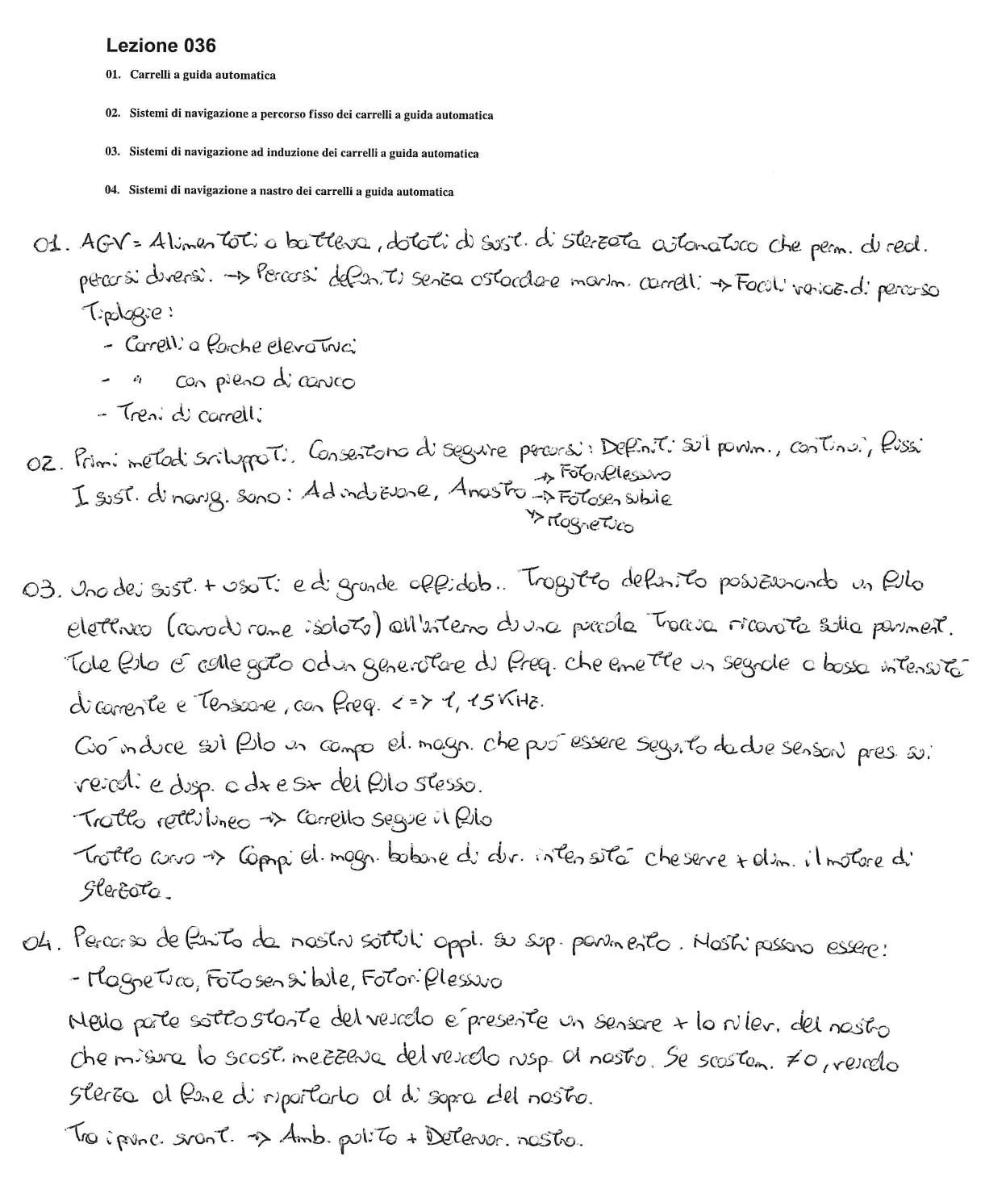 Lezione 036
01. Carrelli a guida automatica
02. Sistemi di navigazione a percorso fisso dei carrelli a guida automatica
03. Sistemi di navigazione ad induzione dei carrelli a guida automatica
04. Sistemi di navigazione a nastro dei carrelli a guida automatica
01. AGV = Alimentati a batteria, dotati di sist. di sterzata automatico che perm. di real.
percorsi diversi. → Percorsi definiti senza ostacolare movim. carrelli → Facili variaz. di percorso
Tipologie:
- Carrelli a forche elevatrici
- " con piano di carico
- Treni di carrelli
02. Primi metodi sviluppati. Consentono di seguire percorsi: Definiti sul pavim., continui, fissi
I sist. di navig. sono: Ad induzione, A nastro → Fotoriflessivo
→ Fotosensibile
→ Magnetico
03. Uno dei sist. + usati e di grande affidab.. Tragitto definito posizionando un filo
elettrico (cavo di rame isolato) all'interno di una piccola traccia ricavata sulla paviment.
Tale filo é collegato ad un generatore di freq. che emette un segnale a bassa intensitá
di corrente e tensione, con freq. <=> 1, 15 KHz.
Ció induce sul filo un campo el. magn. che puó essere seguito da due sensori pres. sui
veicoli e disp. a dx e sx del filo stesso.
Tratto rettilineo → Carrello segue il filo
Tratto curvo → Campi el. magn. bobine di div. intensitá che serve + alim. il motore di
sterzata.
04. Percorso definito da nastri sottili appl. su sup. pavimento. Nastri possono essere:
- Magnetico, Fotosensibile, Fotoriflessivo
Nella parte sottostante del veicolo é presente un sensore + lo rilev. del nastro
che misura lo scost. mezzeria del veicolo risp. al nastro. Se scostam. ≠0, veicolo
sterza al fine di riportarlo al di sopra del nastro.
Tra i princ. svant. → Amb. pulito + Deterior. nastro.